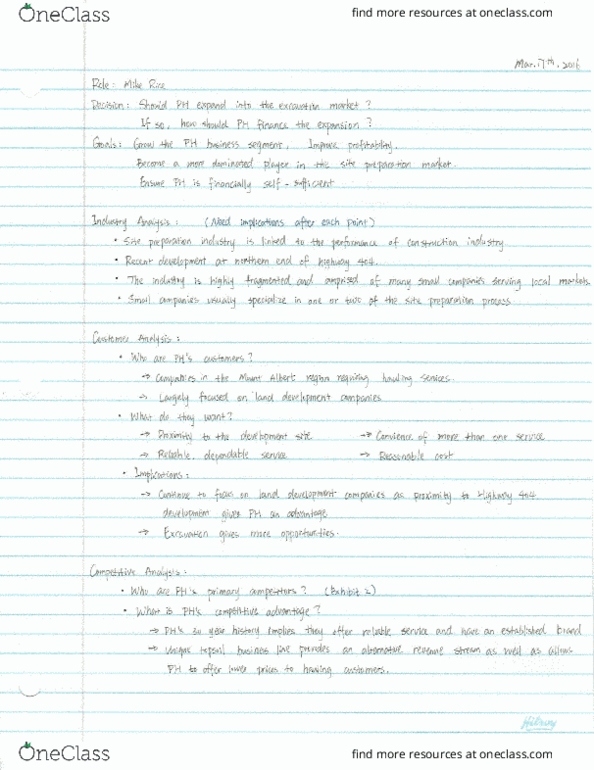 OneClass
find more resources at oneclass.com
Mar. 17th, 2016
Role: Mike Rice
Decision: Should PH expand into the excavation market?
If so, how should PH finance the expansion?
Goals: Grow the PH business segment, Improve profitability.
Become a more dominaned player in the site preparation market.
Ensure PH is financially self-sufficient
Industry Analysis: (Need implications after each point)
• Site preparation industry is linked to the performance of construction industry
• Recent development at northern end of highway 404.
• The industry is highly fragmented and comprised of many small companies serving local markets.
• Small companies usually specialize in one or two of the site preparation process
Customer Analysis:
• Who are PH's customers?
→ Companies in the Mount Albert region requiring hauling services.
→ Largely focused on land development companies
• What do they want?
→ Proximity to the development site → Convience of more than one service
→ Reliable, dependable service → Reasonable cost
• Implications:
→ Continue to focus on land development companies as proximity to Highway 404
development gives PH an advantage
→ Excavation gives more opportunities.
Competitive Analysis:
• Who are PH's primary competitors? (Exhibit 2)
• What is PH's competitive advantage?
→ PH's 30 year history implies they offer reliable service and have an established brand
→ Unique topsoil business line provides an alternative revenue stream as well as allows
PH to offer lower prices to hauling customers.
Hilroy
OneClass
find more resources at oneclass.com